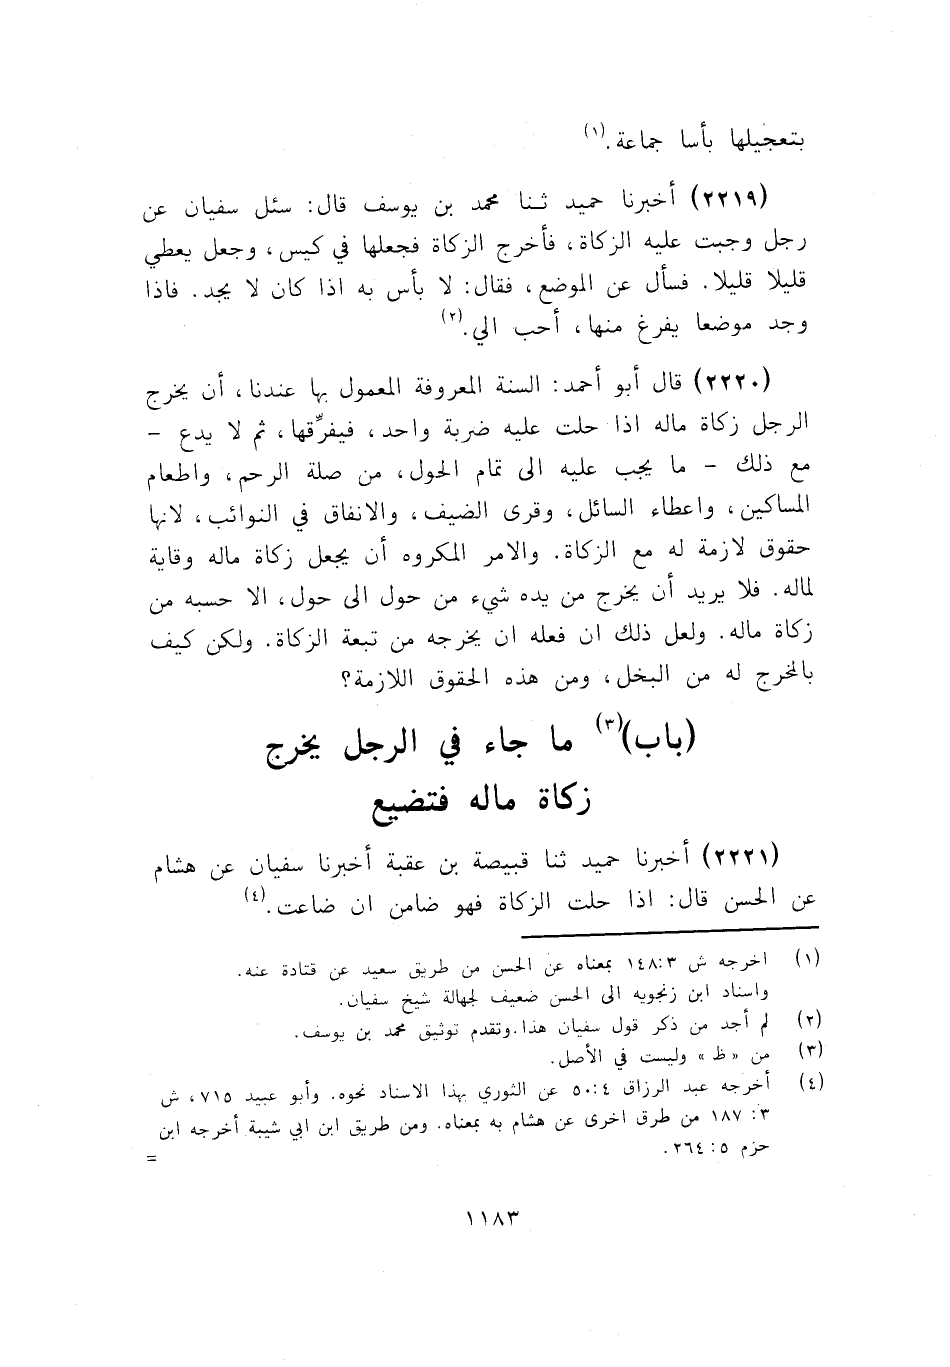 بتعجيلها بأسا جماعة.(١)
(٢٢١٩) أخبرنا حميد ثنا محمد بن يوسف قال: سئل سفيان عن
رجل وجبت عليه الزكاة، فأخرج الزكاة فجعلها في كيس، وجعل يعطي
قليلا قليلا. فسأل عن الموضع، فقال: لا بأس به اذا كان لا يجد. فاذا
وجد موضعا يفرغ منها، أحب الي.(٢)
(٢٢٢٠) قال أبو أحمد: السنة المعروفة المعمول بها عندنا، أن يخرج
الرجل زكاة ماله اذا حلت عليه ضربة واحد، فيفرِّقها، ثم لا يدع –
مع ذلك – ما يجب عليه الى تمام الحول، من صلة الرحم، واطعام
المساكين، واعطاء السائل، وقرى الضيف، والانفاق في النوائب، لانها
حقوق لازمة له مع الزكاة. والامر المكروه أن يجعل زكاة ماله وقاية
لماله. فلا يريد أن يخرج من يده شيء من حول الى حول، الا حسبه من
زكاة ماله. ولعل ذلك ان فعله ان يخرجه من تبعة الزكاة. ولكن كيف
بالمخرج له من البخل، ومن هذه الحقوق اللازمة؟
(باب)(٣) ما جاء في الرجل يخرج
زكاة ماله فتضيع
(٢٢٢١) أخبرنا حميد ثنا قبيصة بن عقبة أخبرنا سفيان عن هشام
عن الحسن قال: اذا حلت الزكاة فهو ضامن ان ضاعت.(٤)
(١) اخرجه ش ٣: ١٤٨ بمعناه عن الحسن من طريق سعيد عن قتادة عنه.
واسناد ابن زنجويه الى الحسن ضعيف لجهالة شيخ سفيان.
(٢) لم أجد من ذكر قول سفيان هذا. وتقدم توثيق محمد بن يوسف.
(٣) من «ظ» وليست في الأصل.
(٤) أخرجه عبد الرزاق ٤: ٥٠ عن الثوري بهذا الاسناد نحوه. وأبو عبيد ٧١٥، ش
٣: ١٨٧ من طرق اخرى عن هشام به بمعناه. ومن طريق ابن ابي شيبة أخرجه ابن
حزم ٥: ٢٦٤.
=
١١٨٣